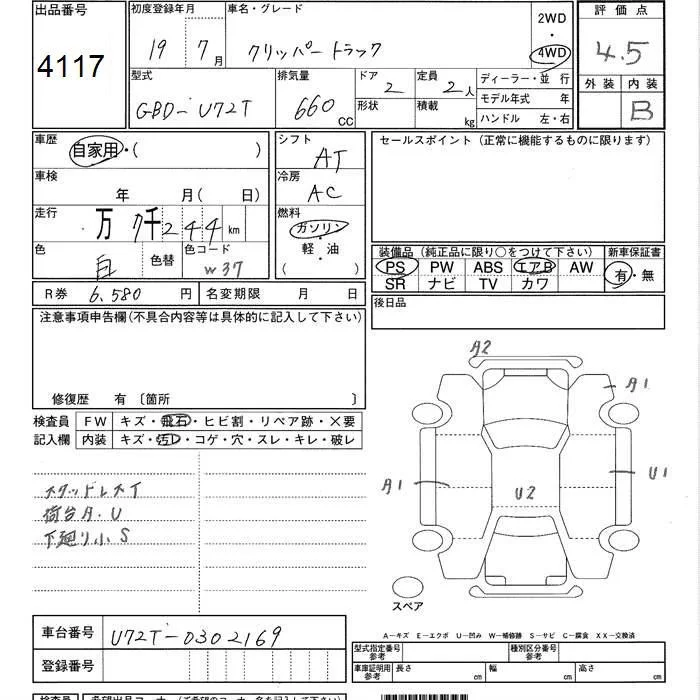 出品番号 初度登録年月 車名・グレード 2WD 評価点
4117 19 7月 クリッパートラック 4WD 4.5
型式 排気量 ドア 定員 ディーラー・並行 外装 内装
GBD-U72T 660CC 2 2人 モデル年式 年 B
形状 積載 kg ハンドル 左・右
車歴 自家用・( ) シフト AT セールスポイント (正常に機能するものに限ります)
車検 年 月(日) 冷房 AC
走行 万 7千244km 燃料 ガソリン
軽・油
( )
色 白 色替 色コード W37
装備品 (純正品に限り○をつけて下さい) 新車保証書
PS PW ABS エアB AW 有・無
SR ナビ TV カワ
R券 6,580円 名変期限 月 日 後日品
注意事項申告欄(不具合内容等は具体的に記入して下さい)
修復歴 有 〔箇所 〕
検査員 FW キズ・飛石・ヒビ割・リペア跡・×要
記入欄 内装 キズ・汚レ・コゲ・穴・スレ・キレ・破レ
スタッドレスT
荷台A.U
下廻り小S
A2
A1
A1
U1
U2
スペア
車台番号 U72T-0302169
登録番号
A-キズ E-エクボ U-凹み W-補修跡 S-サビ C-腐食 XX-交換済
型式指定番号 参考 種別区分番号 参考
車庫証明用 参考 長さ cm 幅 cm 高さ cm